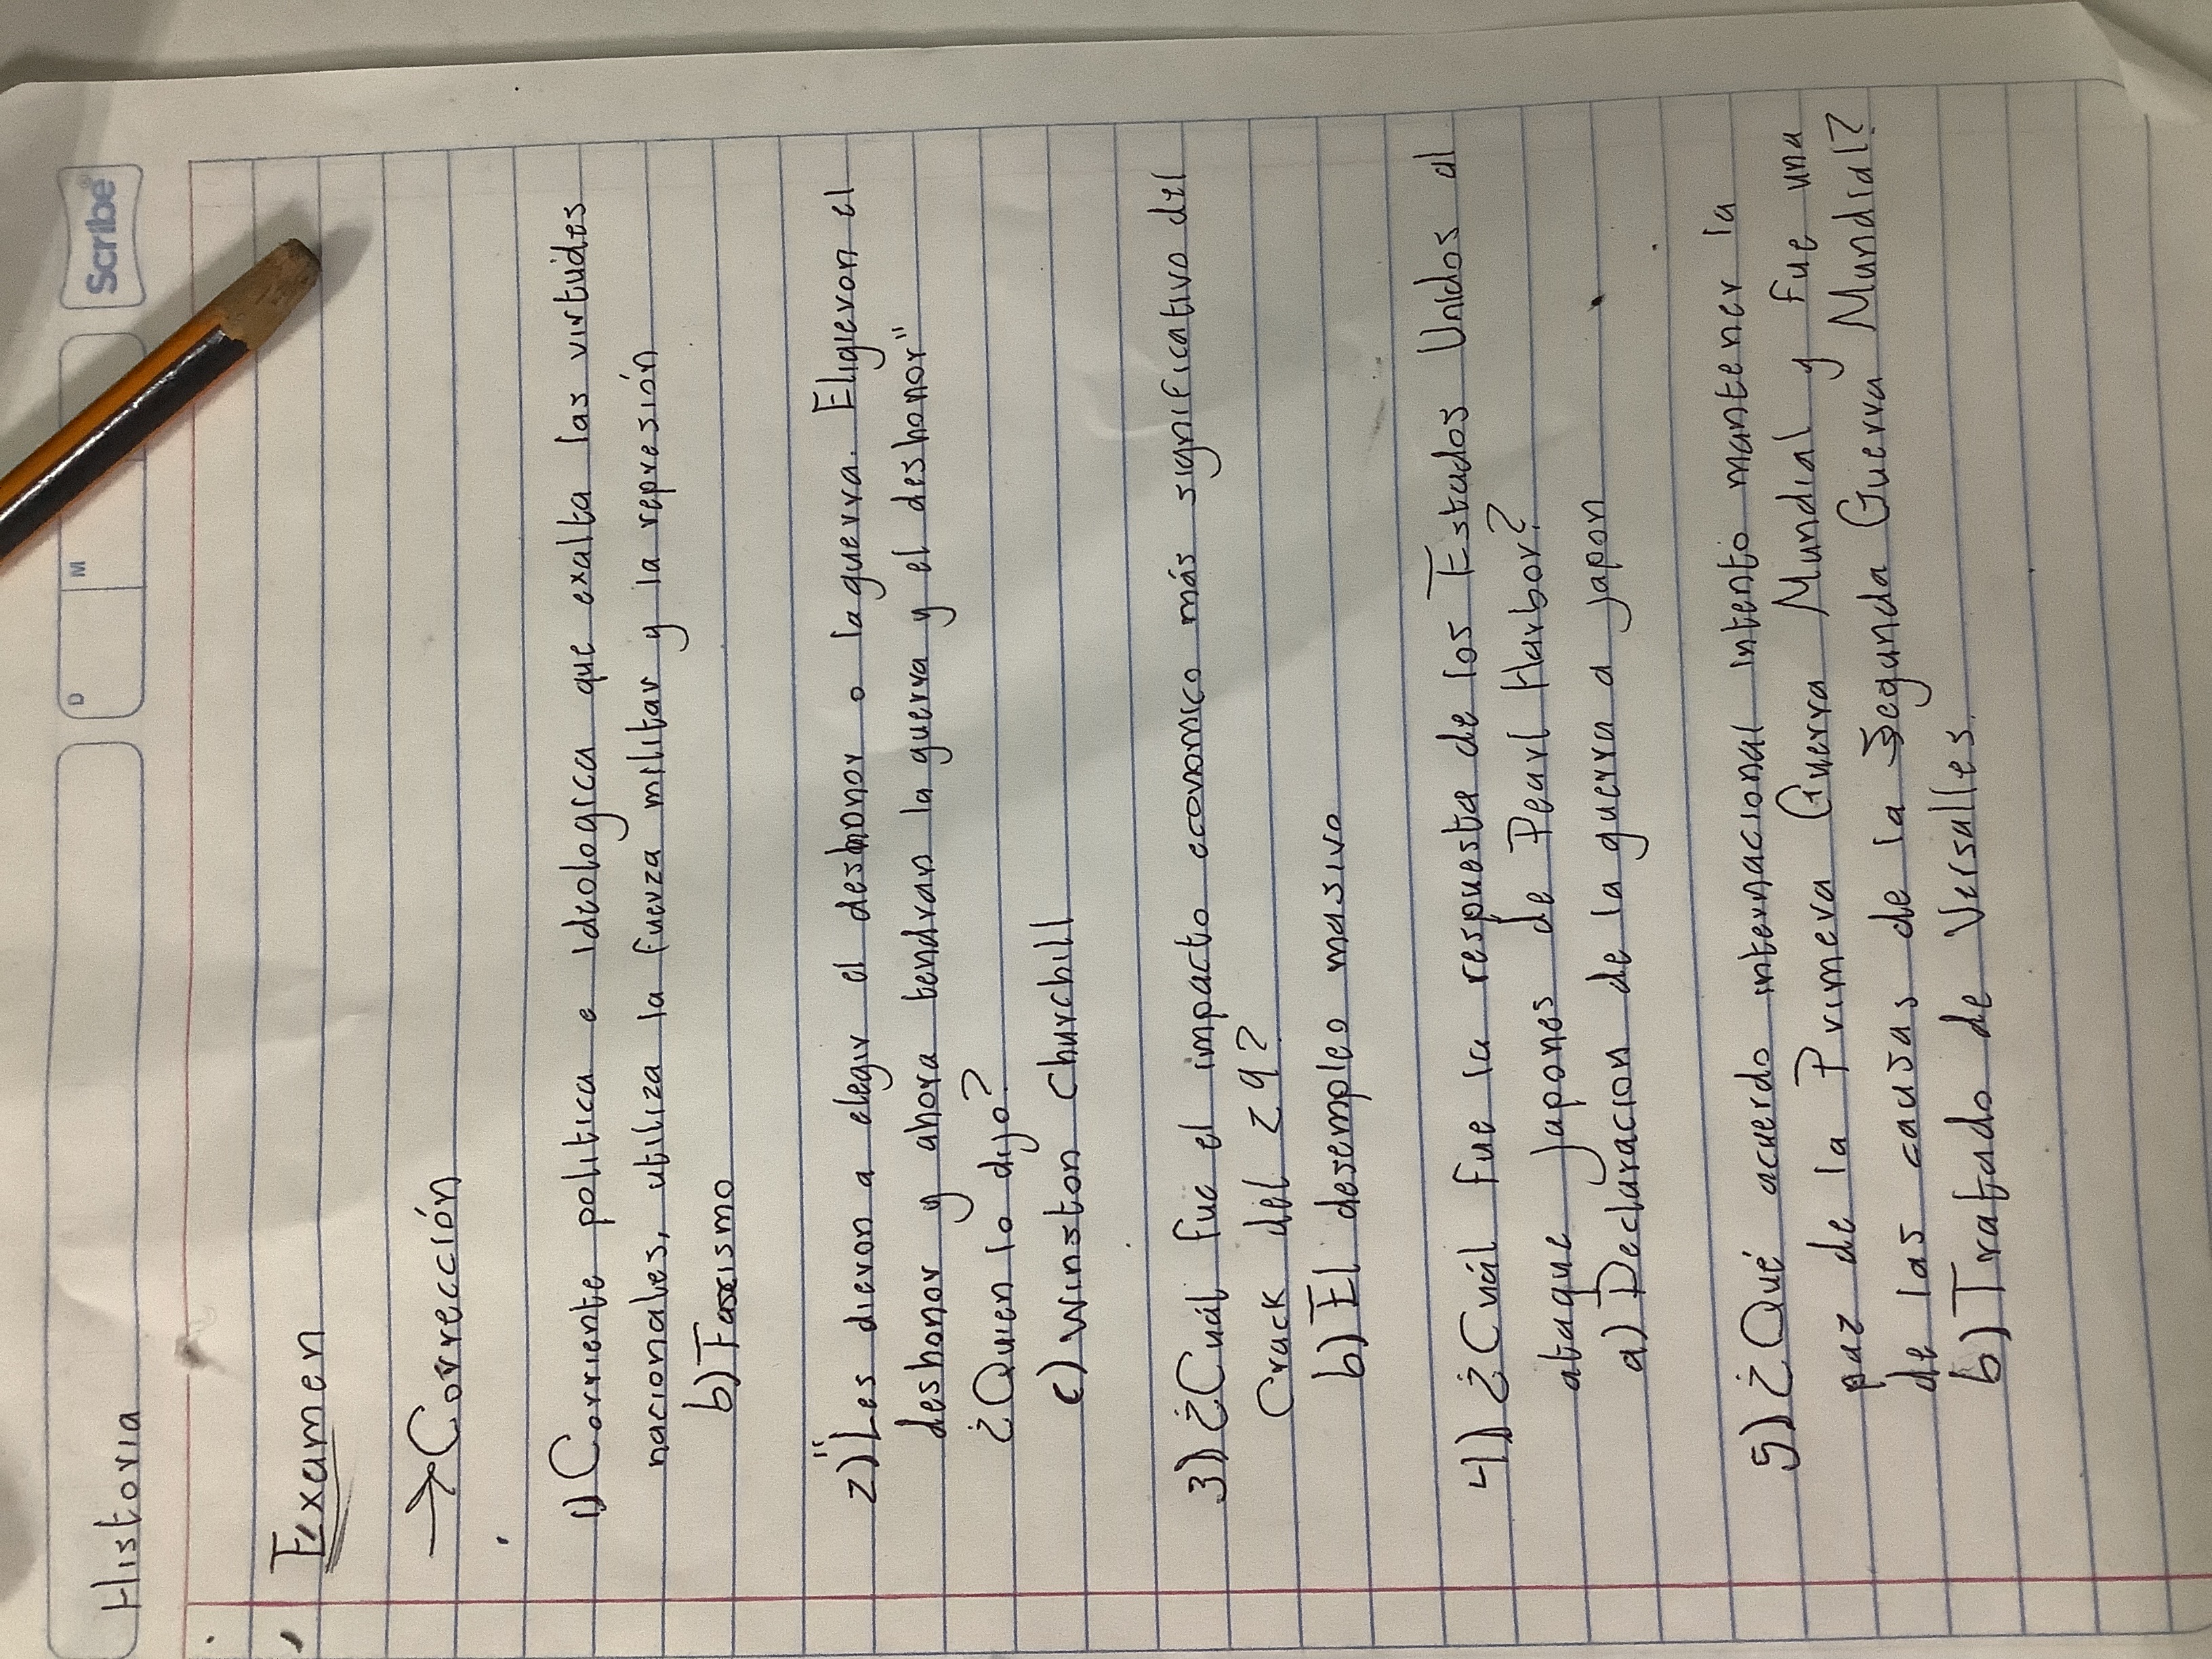 Historia
D M
Scribe®
Examen
→Corrección
1) Corriente politica e ideologica que exalta las virtudes
nacionales, utiliza la fuerza militar y la represión
b) Fascismo
2) "Les dieron a elegir el deshonor o la guerra. Eligieron el
deshonor y ahora tendran la guerra y el deshonor"
¿Quien lo dijo?
c) Winston Churchill
3) ¿Cuál fue el impacto economico más significativo del
Crack del 29?
b) El desempleo masivo
4) ¿Cuál fue la respuesta de los Estados Unidos al
ataque japones de Pearl Harbor?
a) Declaracion de la guerra a japon
5) ¿Qué acuerdo internacional intento mantener la
paz de la Primera Guerra Mundial y fue una
de las causas de la Segunda Guerra Mundial?
b) Tratado de Versalles.